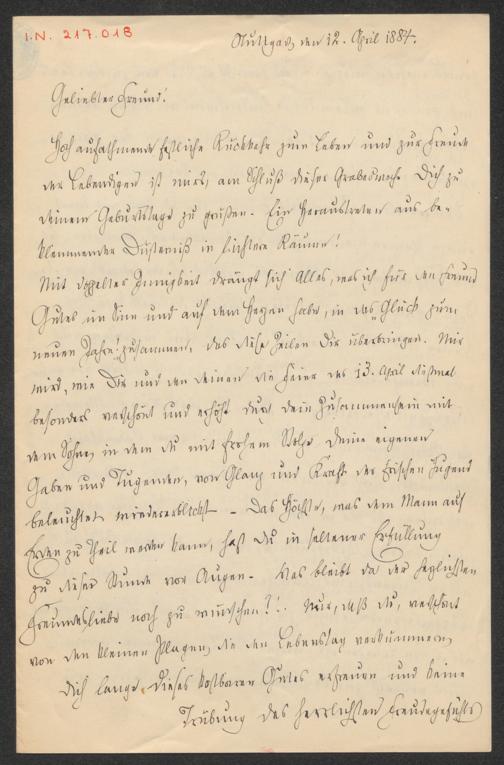 I.N. 217.018
Stuttgart, den 12. April 1884.
Geliebter Freund!
Hoch aufathmende festliche Rückkehr zum Leben und zur Freude
der Lebendigen ist mir's, am Schluß dieser Grabeswoche Dich zu
deinem Geburtstage zu grüßen. Ein Heraustreten aus be-
klemmender Düsterniß in lichtere Räume!
Mit doppelter Innigkeit drängt sich Alles, was ich für den Freund
Gutes im Sinn und auf dem Herzen habe, in das „Glück zum
neuen Jahre" zusammen, das diese Zeilen Dir überbringen. Mir
wird, wie Dir und den Deinen die Feier des 13. April dießmal
besonders verschönt und erhöht durch dein Zusammensein mit
dem Sohne, in dem du mit frohem Stolze deine eigenen
Gaben und Tugenden, von Glanz und Kraft der frischen Jugend
beleuchtet, wiedererblickst. Das Höchste, was dem Mann auf
Erden zu Theil werden kann, hast du in seltener Erfüllung
zu dieser Stunde vor Augen. Was bleibt da der herzlichsten
Freundesliebe noch zu wünschen?! Nur, daß du, verschont
von den kleinen Plagen, die den Lebenstag verkümmern,
dich lange dieses kostbaren Gutes erfreuen und keine
Trübung des herrlichsten Freudegefühls